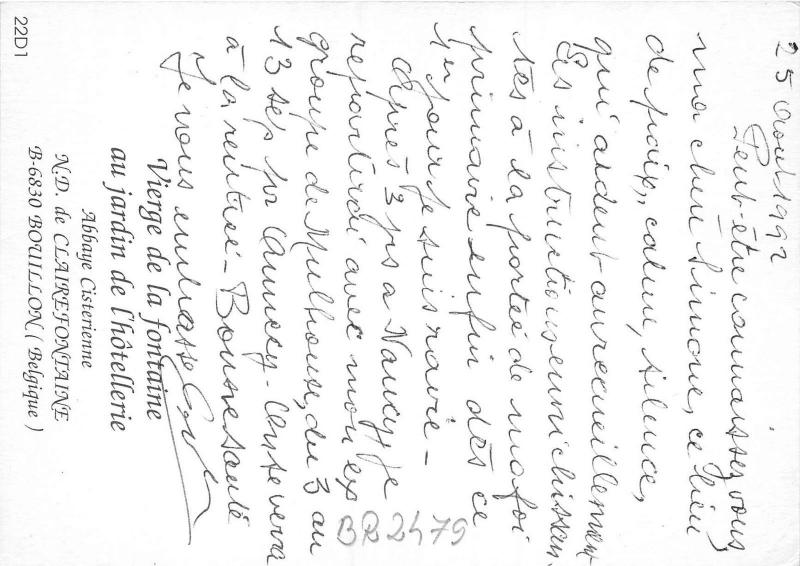 25 Aout 1992
Peut-être connaissez vous,
ma chère Simone, ce lieu
de paix, calme, silence,
qui aident au recueillement
Les instructions enrichissan-
tes à la portée de ma foi
primaire enfin dès ce
1er jour je suis ravie -
Après 3 jrs a Nancy, je
repartirai avec mon ex
groupe de Mulhouse, du 3 au
13 sep pr Annecy - On se verra
à la rentrée - Bonne santé
Je vous embrasse
Vierge de la fontaine
au jardin de l'hôtellerie
Abbaye Cisterienne
N.D. de CLAIREFONTAINE
B-6830 BOUILLON ( Belgique )
22D1
BB2479